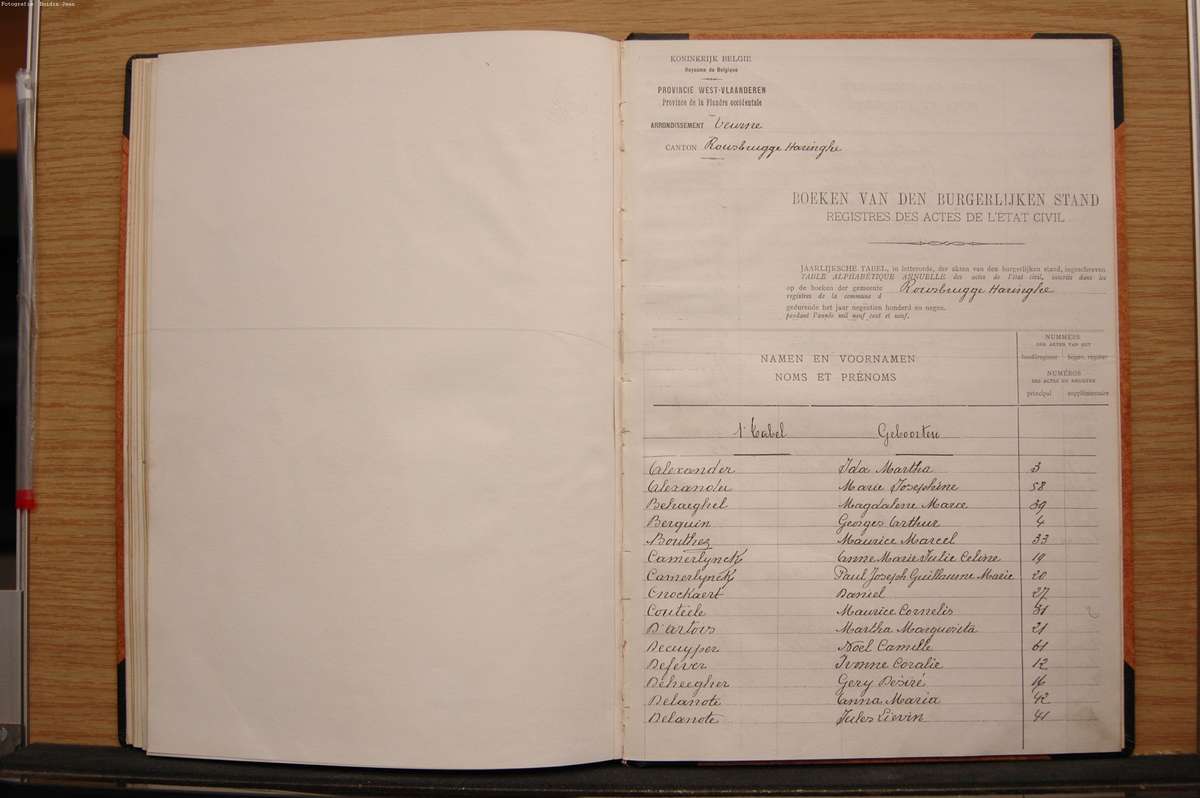 Fotografie Buidin Jean
KONINKRIJK BELGIE
Royaume de Belgique
PROVINCIE WEST-VLAANDEREN
Province de la Flandre occidentale
ARRONDISSEMENT Veurne
CANTON Rousbrugge Haringhe
BOEKEN VAN DEN BURGERLIJKEN STAND
REGISTRES DES ACTES DE L'ÉTAT CIVIL
JAARLIJKSCHE TABEL, in letterorde, der akten van den burgerlijken stand, ingeschreven
TABLE ALPHABÉTIQUE ANNUELLE des actes de l'état civil, inscrits dans les
op de boeken der gemeente Rousbrugge Haringhe
registres de la commune d
gedurende het jaar negentien honderd en negen.
pendant l'année mil neuf cent et neuf.
NAMEN EN VOORNAMEN
NOMS ET PRÉNOMS
NUMMERS
DER AKTEN VAN HET
hoofdregister bijgev. register
NUMÉROS
DES ACTES DU REGISTRE
principal supplémentaire
1e Tabel Geboorten
Alexander Ida Martha 3
Alexander Marie Josephine 58
Behaeghel Magdalene Marce 39
Berquin Georges Arthur 4
Bouthez Maurice Marcel 33
Camerlynck Anne Marie Julie Celine 19
Camerlynck Paul Joseph Guillaume Marie 20
Cnockaert Daniel 27
Couteele Maurice Cornelis 31
D'artois Martha Marguerita 21
Decuyper Noël Camille 61
Defever Ivonne Coralie 12
Deheegher Gery Désiré 16
Delanote Anna Maria 42
Delanote Jules Lievin 41